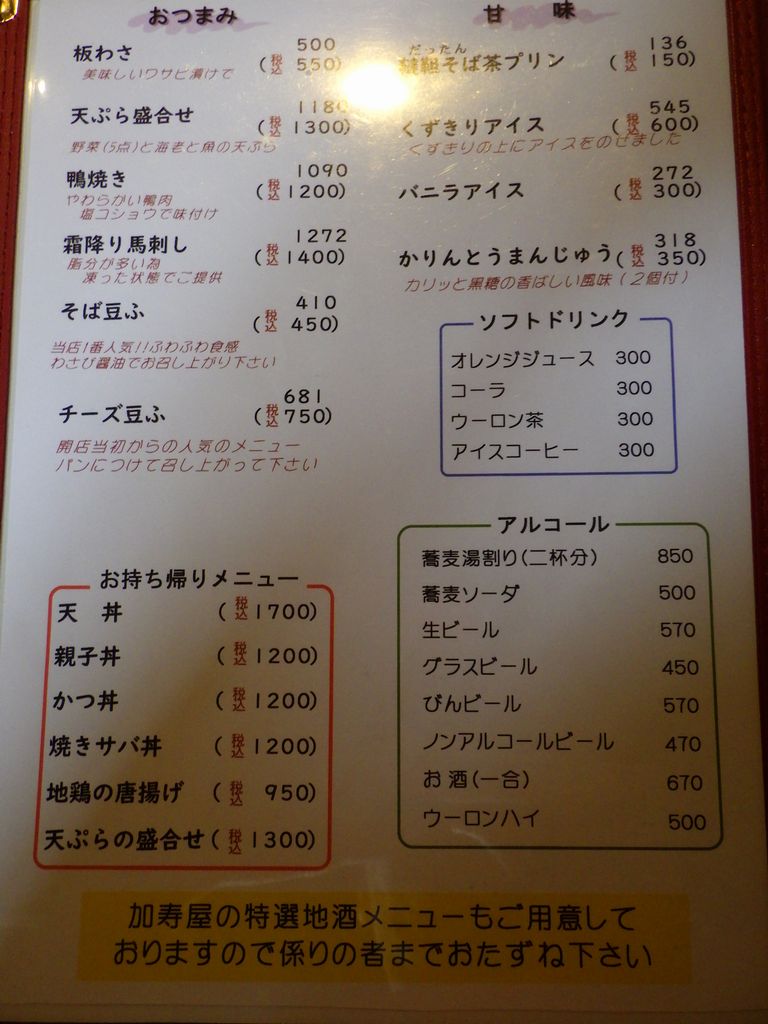 おつまみ
板わさ 500
(税込 550)
美味しいワサビ漬けで
天ぷら盛合せ 1180
(税込 1300)
野菜(5点)と海老と魚の天ぷら
鴨焼き 1090
(税込 1200)
やわらかい鴨肉
塩コショウで味付け
霜降り馬刺し 1272
(税込 1400)
脂分が多い為
凍った状態でご提供
そば豆ふ 410
(税込 450)
当店1番人気!!ふわふわ食感
わさび醤油でお召し上がり下さい
チーズ豆ふ 681
(税込 750)
開店当初からの人気のメニュー
パンにつけて召し上がって下さい
お持ち帰りメニュー
天 丼 (税込 1700)
親子丼 (税込 1200)
かつ丼 (税込 1200)
焼きサバ丼 (税込 1200)
地鶏の唐揚げ (税込 950)
天ぷらの盛合せ (税込 1300)
甘 味
だったん 136
韃靼そば茶プリン (税込 150)
545
くずきりアイス (税込 600)
くずきりの上にアイスをのせました
272
バニラアイス (税込 300)
318
かりんとうまんじゅう (税込 350)
カリッと黒糖の香ばしい風味(2個付)
ソフトドリンク
オレンジジュース 300
コーラ 300
ウーロン茶 300
アイスコーヒー 300
アルコール
蕎麦湯割り(二杯分) 850
蕎麦ソーダ 500
生ビール 570
グラスビール 450
びんビール 570
ノンアルコールビール 470
お酒(一合) 670
ウーロンハイ 500
加寿屋の特選地酒メニューもご用意して
おりますので係りの者までおたずね下さい